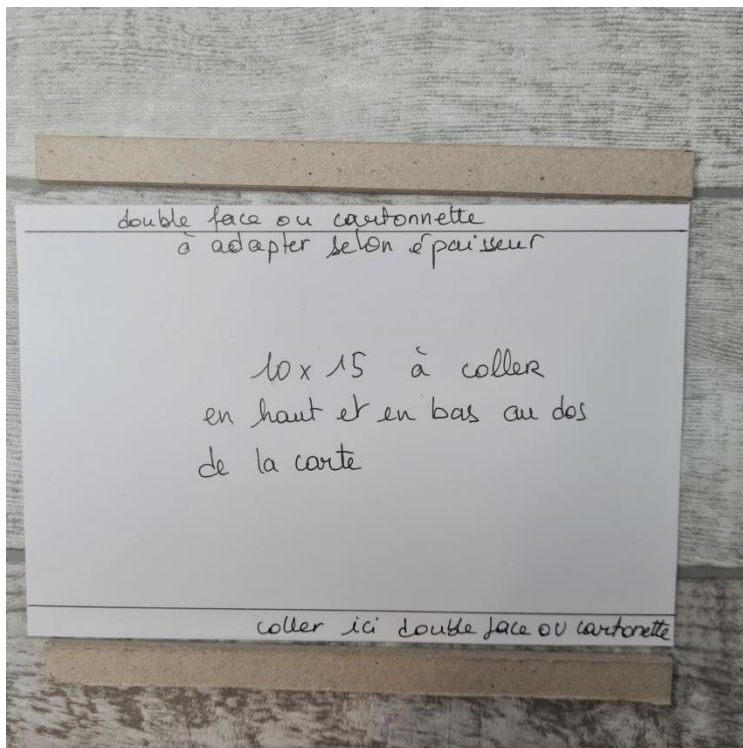 double face ou cartonnette
à adapter selon épaisseur
10 x 15 à coller
en haut et en bas au dos
de la carte
coller ici double face ou cartonette